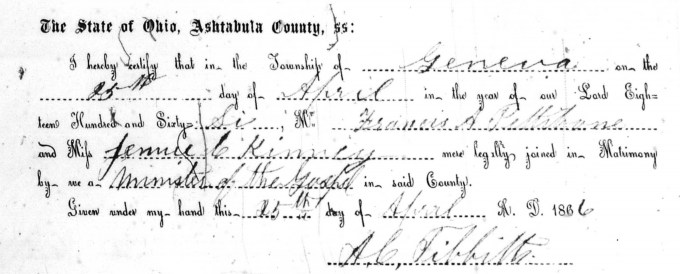 The State of Ohio, Ashtabula County, ss:
I hereby certify that in the Township of Geneva on the
25th day of April in the year of our Lord Eigh=
teen Hundred and Sixty= Six, Mr. Francis A
and Miss Jennie C Kinney were legally joined in Matrimony
by me a Minister of the Gospel in said County.
Given under my hand this 25th day of April A. D. 1866
A. C. Tibbitts.